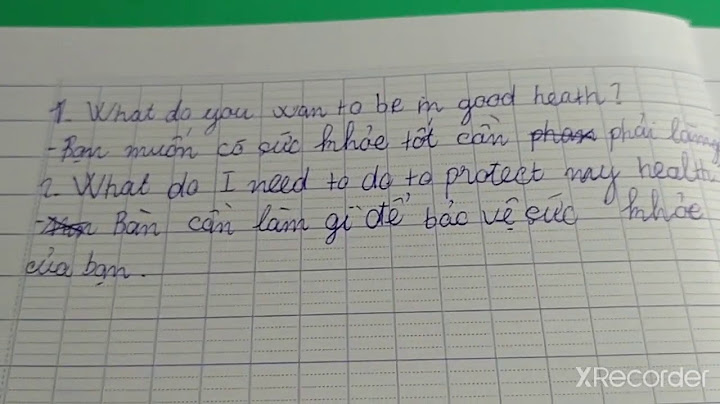 1. What do you wan to be in good heath?
- Bạn muốn có sức khỏe tốt cần phải làm
2. What do I need to do to protect may health
- Bàn cần làm gì để bảo vệ sức khỏe
của bạn.
XRecorder